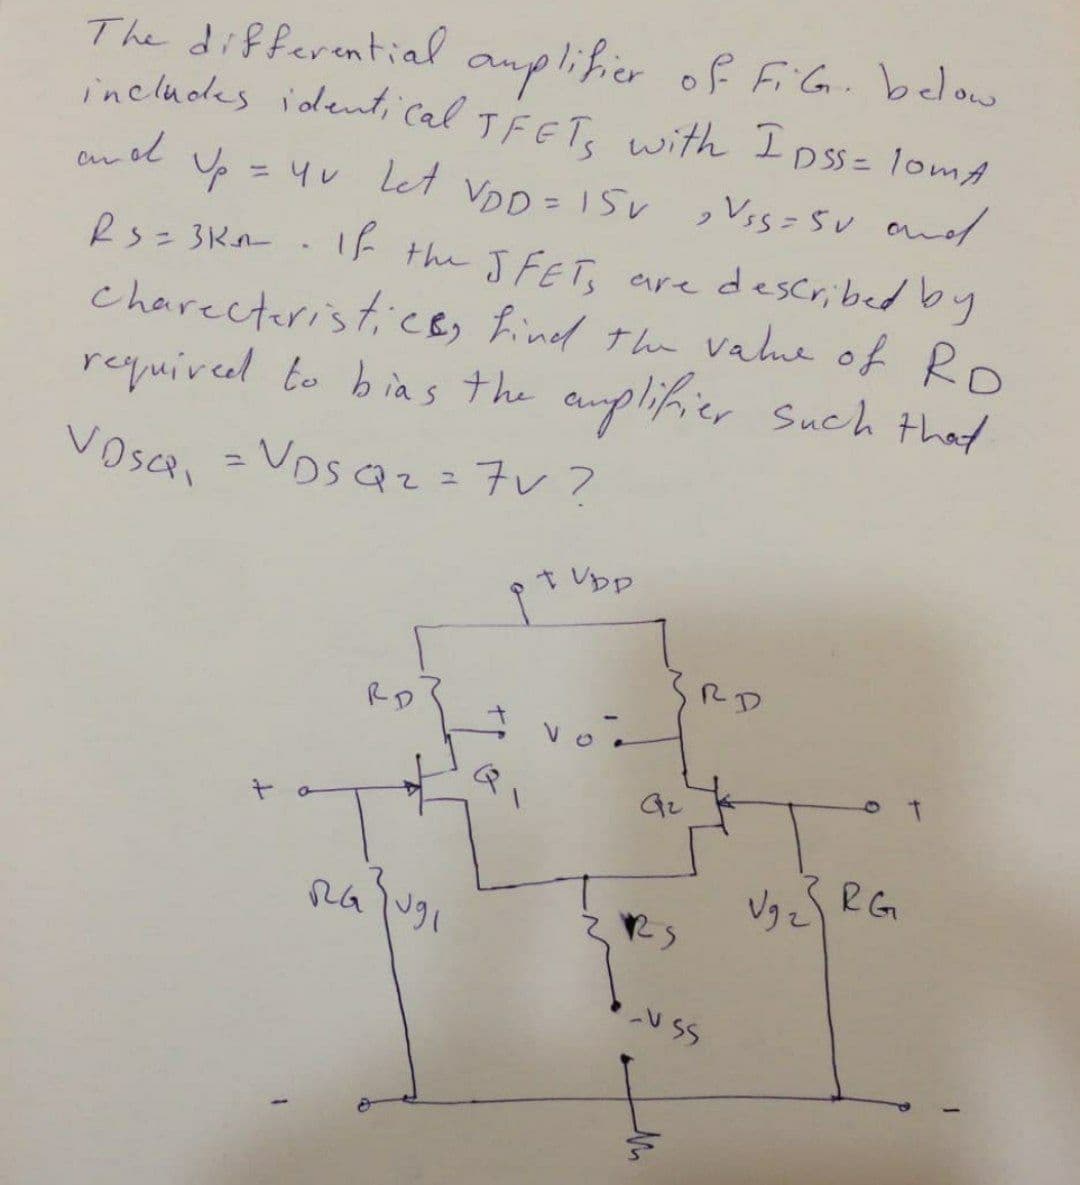 The differential amplifier of FiG. below
includes identical JFETs with IDSS = 10mA
and Vp = 4v Let VDD = 15v , VSS = 5v and
RS = 3KΩ . If the JFETs are described by
charecteristics, find the value of RD
required to bias the amplifier such that
VDSQ1 = VDSQ2 = 7v ?
+ VDD
RD
RD
+ Vo -
+
Q1
Q2
+
RG
Vg1
RS
Vg2
RG
-VSS
-
-